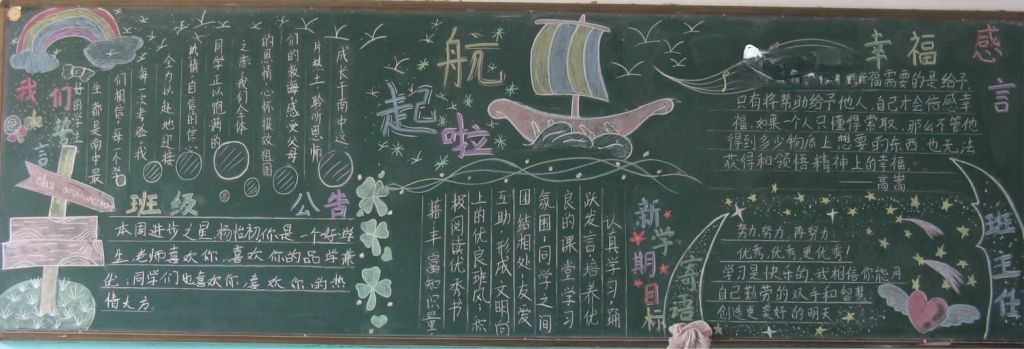 我们的誓言
成长于南中这
片热土,聆听恩师
们的教诲,感受父母
的恩情,心怀报效祖国
之志。我们全体
同学正以饱满的
热情、自信的信
全力以赴地迎接
每一次考验。我
们相信:每一个学
生都是南中最
好的学生
class announcement
班级公告
本周进步之星:杨怡初你是一个好学
生,老师喜欢你,喜欢你的品学兼
优,同学们也喜欢你,喜欢你的热
情大方
起航啦
新学期目标
认真学习,踊
跃发言,培养优
良的课堂学习
氛围,同学之间
团结相处,友爱
互助,形成文明向
上的优良班风,积
极阅读优本书
籍,丰富知识量
幸福感言
幸福需要的是给予,
只有将帮助给予他人,自己才会倍感幸
福.如果一个人只懂得索取,那么不管他
得到多少物质上想要的东西,也无法
获得和领悟精神上的幸福。
——高嵩
班主任寄语
努力,努力,再努力
优秀,优秀,更优秀!
学习是快乐的,我相信你能用
自己勤劳的双手和智慧
创造更美好的明天!